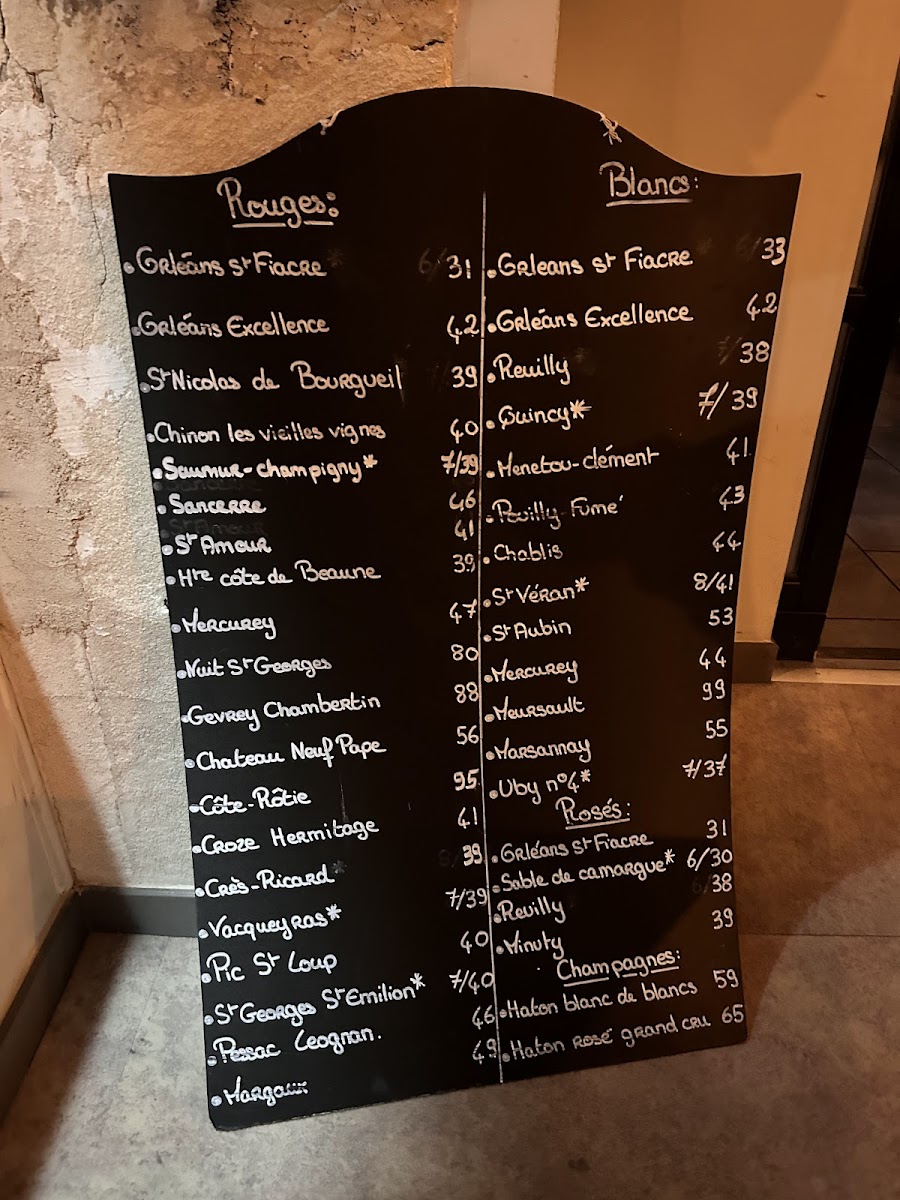 Rouges:
Orléans St Fiacre 31
Orléans Excellence 42
St Nicolas de Bourgueil 39
Chinon les vieilles vignes 40
Saumur-champigny* 7/39
Sancerre 46
St Amour 41
Hte côte de Beaune 39
Mercurey 47
Nuit St Georges 80
Gevrey Chambertin 88
Chateau Neuf Pape 56
Côte-Rôtie 95
Croze Hermitage 41
Crès-Ricard 39
Vacqueyras* 7/39
Pic St Loup 40
St Georges St Emilion* 7/40
Pessac Leognan. 46
Margaux 49
Blancs:
Orleans St Fiacre 33
Orléans Excellence 42
Reuilly 38
Quincy* 7/39
Menetou-clément 41
Pouilly-Fumé 43
Chablis 44
St Véran* 8/41
St Aubin 53
Mercurey 44
Meursault 99
Marsannay 55
Uby n°4* 7/37
Rosés:
Orléans St Fiacre 31
Sable de camargue* 6/30
Reuilly 38
Minuty 39
Champagnes:
Haton blanc de blancs 59
Haton rosé grand cru 65